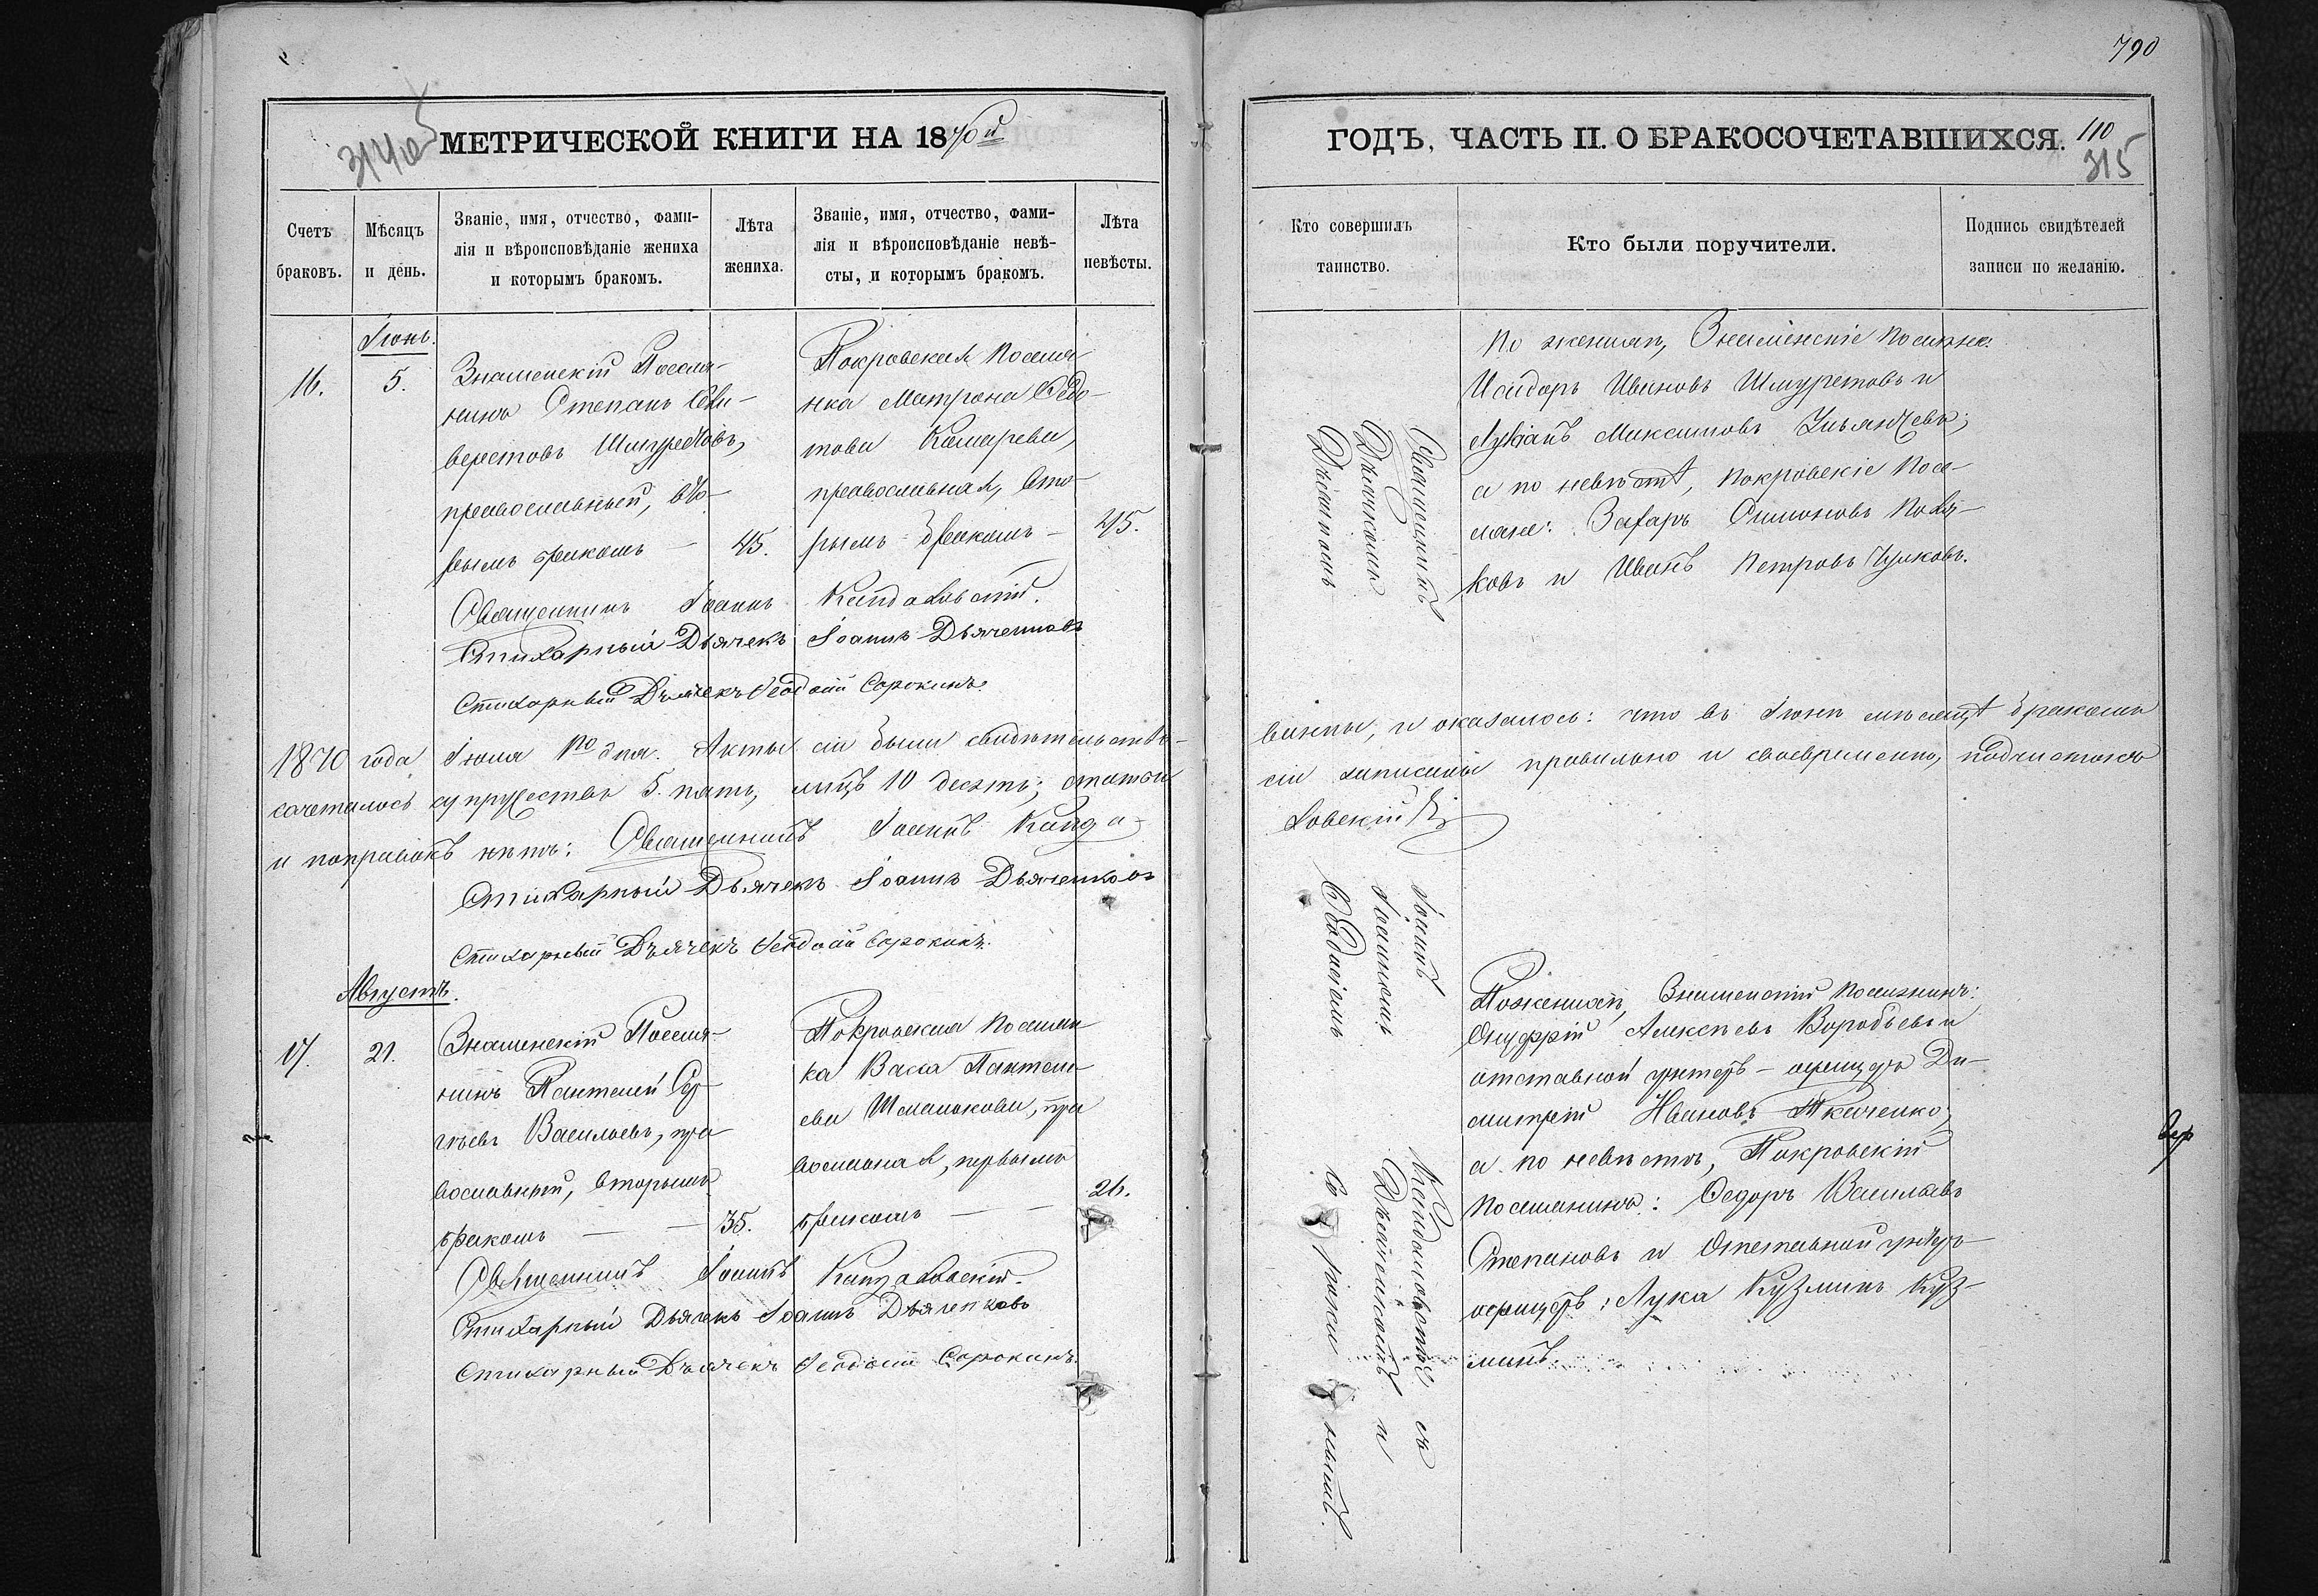 790
314 об
МЕТРИЧЕСКОЙ КНИГИ НА 1870й
Счетъ браковъ.
Мѣсяцъ и день.
Званіе, имя, отчество, фами-
лія и вѣроисповѣданіе жениха
и которымъ бракомъ.
Лѣта
жениха.
Званіе, имя, отчество, фами-
лія и вѣроисповѣданіе невѣ-
сты, и которымъ бракомъ.
Лѣта
невѣсты.
Іюнь.
16.
5.
Знаменскій Поселя-
нинъ Степанъ Сили-
верстовъ Шмуретовъ,
православный, вто-
рымъ бракомъ —
45.
Покровская поселя-
нка Матрона Ѳедо-
това
православная, вто-
рымъ бракомъ —
45.
Священникъ Іоаннъ
Стихарный Дьячекъ Іоаннъ Дьяченковъ
Стихарный Дьячекъ Ѳеодосій Сорокинъ.
1870 года Іюля 1го дня. Акты сіи были свидѣтельство-
сочеталось супружествъ 5. пять, лицъ 10 десять;
и поправокъ нѣтъ: Священникъ Іоаннъ Кандо-
Стихарный Дьячекъ Іоаннъ Дьяченковъ
Стихарный Дьячекъ Ѳеодосій Сорокинъ.
Августъ.
17.
21.
Знаменскій Поселя-
нинъ Пантелей Сер-
гѣевъ Васильевъ, пра-
вославный, вторымъ
бракомъ — —
35.
Покровская поселян-
ка Васса Пантеле-
ева Шмалькова, пра-
вославная, первымъ
бракомъ — —
26.
Священникъ Іоаннъ
Стихарный Дьячекъ Іоаннъ Дьяченковъ
Стихарный Дьячекъ Ѳеодосій Сорокинъ.
ГОДЪ, ЧАСТЬ II. О БРАКОСОЧЕТАВШИХСЯ.
110
315
Кто совершилъ
таинство.
Кто были поручители.
Подпись свидѣтелей
записи по желанію.
По женихѣ, Знаменскіе поселяне:
Исидоръ Ивановъ Шмуретовъ и
Лукіанъ Максимовъ Ульянцевъ;
а по невѣстѣ, покровскіе посе-
ляне: Захаръ Симоновъ Поля-
ковъ и Иванъ Петровъ
ванны, и оказалось: что въ Іюнѣ мѣсяцѣ бракомъ
сіи записаны правильно и своевременно, подчистокъ
ловскій
По женихѣ, Знаменскій поселянинъ:
Онуфрій Алексѣевъ Воробьевъ и
отставной унтеръ-офицеръ Ди-
митрій Ивановъ Ткаченко,
а по невѣстѣ, Покровскій
поселянинъ: Ѳедоръ Васильевъ
Степановъ и Отставной унтеръ-
офицеръ: Лука Кузминъ Куз-
минъ.
Священникъ Іоаннъ съ
Дьячкомъ Іоанномъ Дьяченковымъ и
Дьячкомъ Ѳеодосіемъ Сорокинымъ.